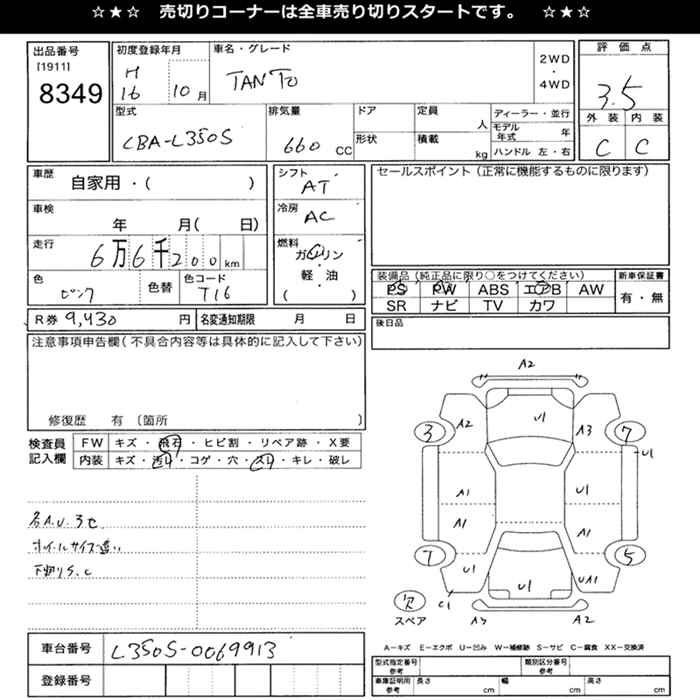 ☆★☆ 売切りコーナーは全車売り切りスタートです。 ☆★☆
出品番号
[1911]
8349
初度登録年月
H
16 10月
車名・グレード
TANTO
2WD
・
4WD
評価点
3.5
外装 内装
C C
型式
CBA-L350S
排気量
660 CC
ドア
形状
定員
人
積載
kg
ディーラー・並行
モデル年式 年
ハンドル 左・右
車歴
自家用・( )
車検
年 月( 日)
走行
6万6千200km
色
ピンク
色替
色コード
T16
シフト
AT
冷房
AC
燃料
ガソリン
・
軽・油
( )
セールスポイント(正常に機能するものに限ります)
装備品(純正品に限り○をつけてください)
PS PW ABS エアB AW
SR ナビ TV カワ
新車保証書
有・無
R券 9,430 円
名変通知期限 月 日
後日品
注意事項申告欄(不具合内容等は具体的に記入して下さい)
修復歴 有 〔箇所
検査員
記入欄
FW キズ・飛石・ヒビ割・リペア跡・X要
内装 キズ・汚れ・コゲ・穴・スレ・キレ・破レ
各A.U.3セ
ホイールサイズ違い
下廻りS.C
A2
U1
3
A2
A3
7
U1
A1
U1
A1
A1
7
5
U1
U1
UA1
C1
A3
A2
欠
スペア
A―キズ E―エクボ U―凹み W―補修跡 S―サビ C―腐食 XX―交換済
車台番号
L350S-0069913
登録番号
型式指定番号
参考
類別区分番号
参考
車庫証明用
参考
長さ cm
幅 cm
高さ cm